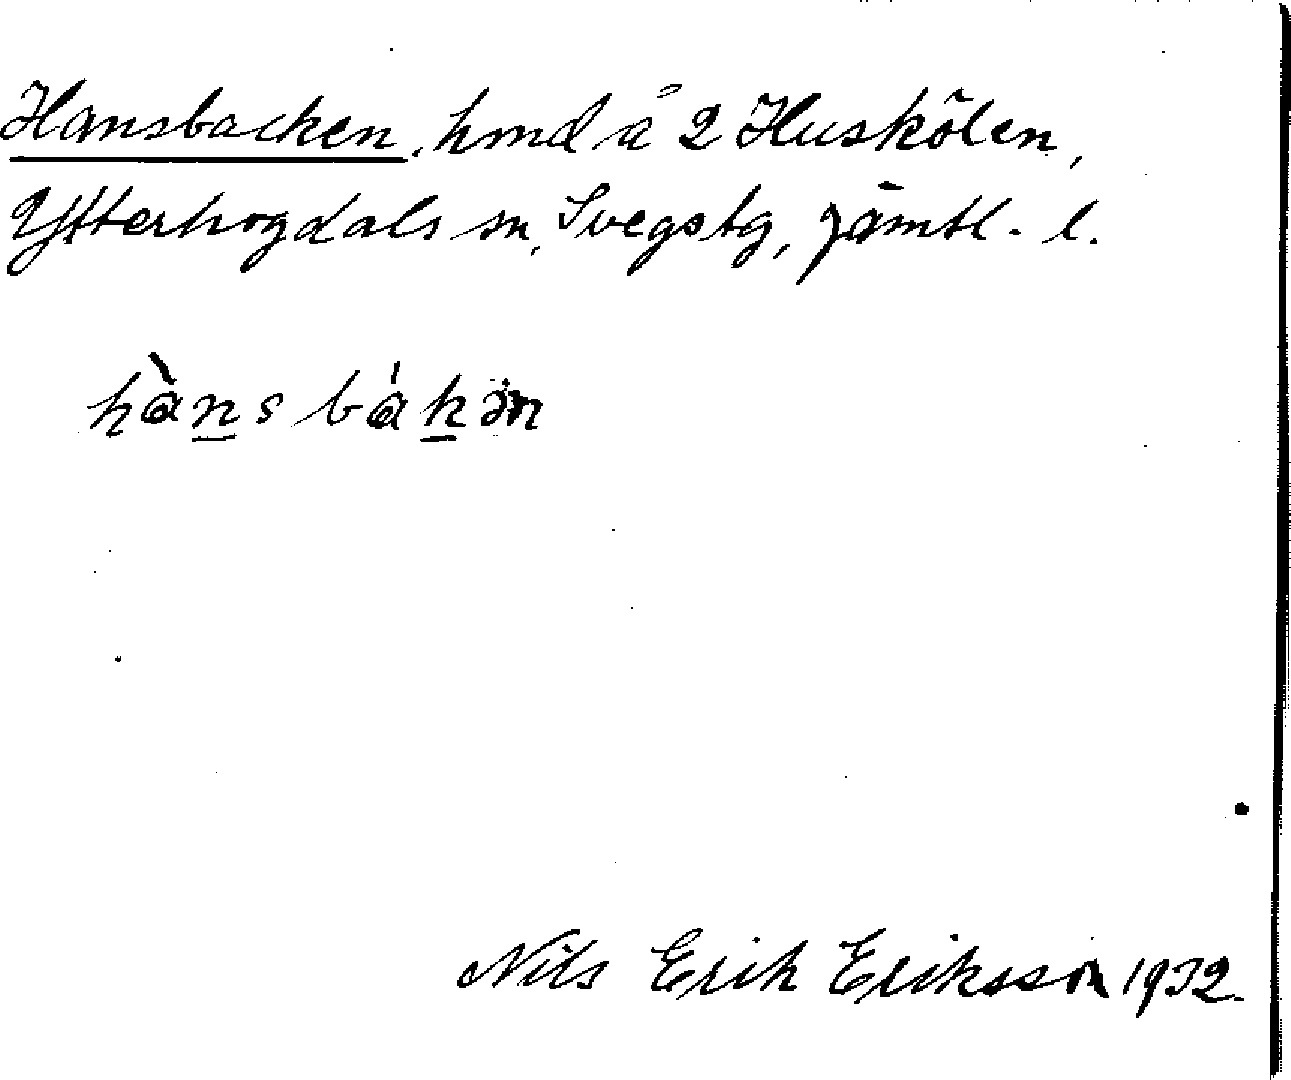 Hansbacken, hmd å 2 Huskölen,
Ytterhogdals sn, Svegs tg, Jämtl. l.
hàn̲s bák̲ən
Nils Erik Eriksson 1932.